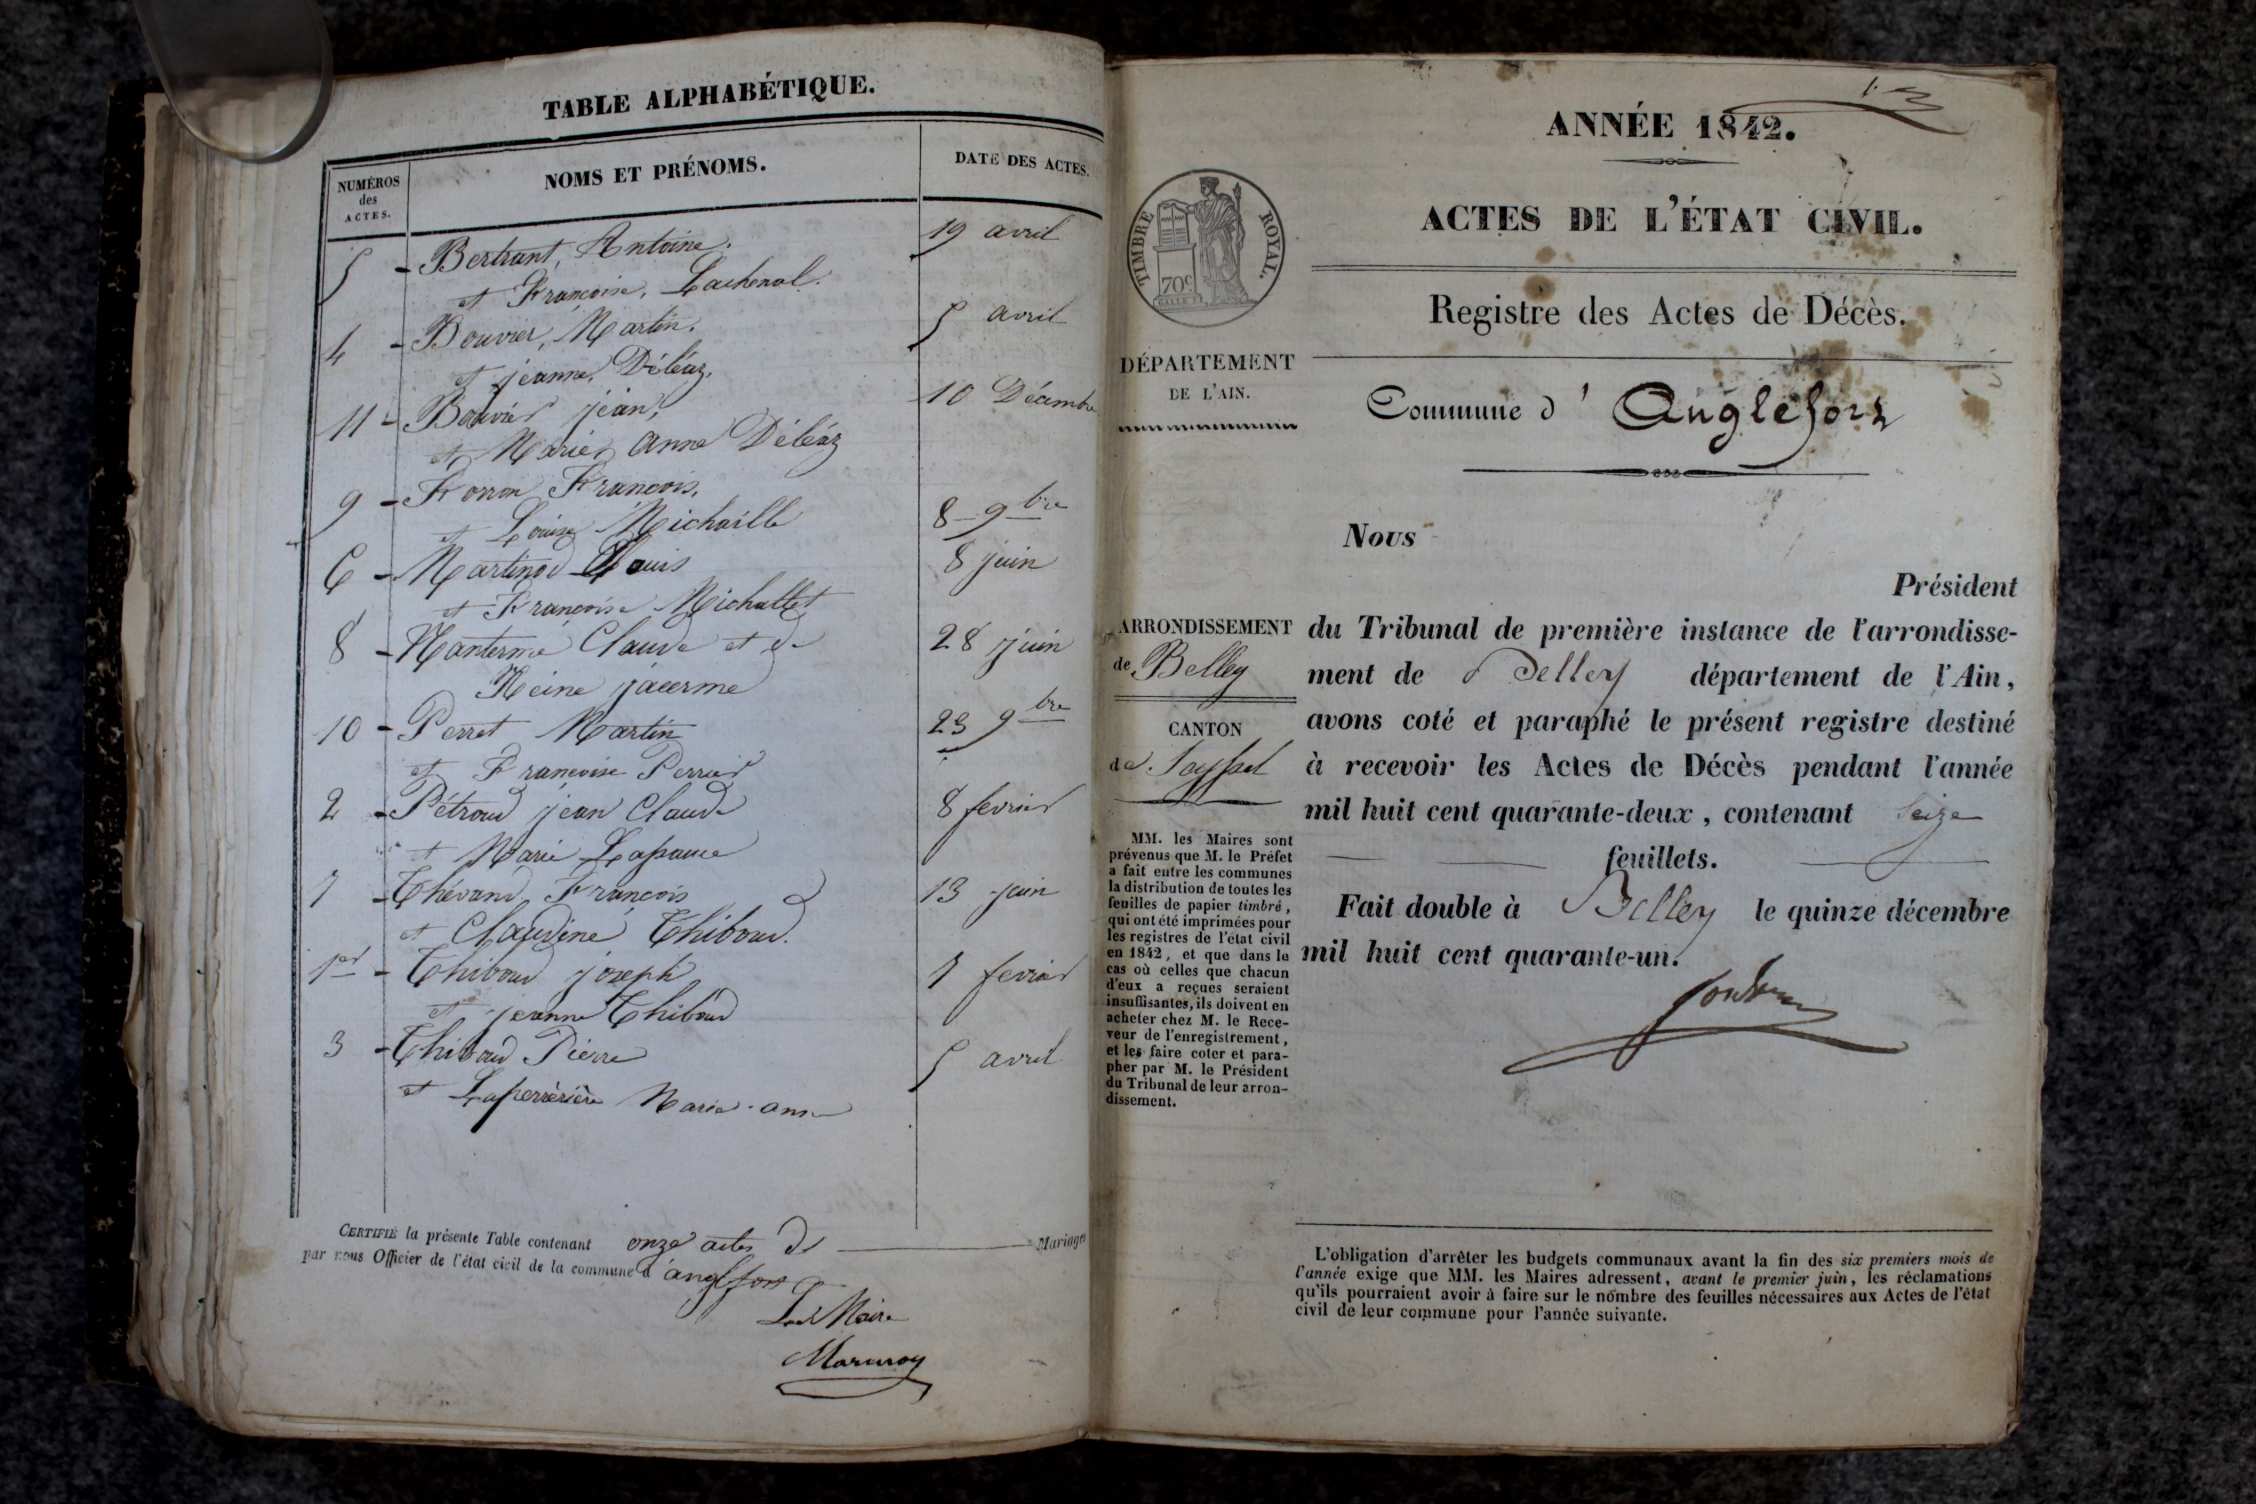 TABLE ALPHABÉTIQUE.
NUMÉROS des ACTES.
NOMS ET PRÉNOMS.
DATE DES ACTES.
5 - Bertrant, Antoine. 19 avril
et Françoise, Lachenal.
4 - Bouvier, Martin. 5 avril
et jeanne, Déléaz.
11 - Bouvier jean, 10 Décembre
et Marie, anne Déléaz
9 - François. 8 - 9bre
et Louise Michaille
6 - Martinod Louis 8 juin
et Françoise Michallet
8 - Nanterme Claude et de 28 juin
Reine jacerme
10 - Perret Martin 23 9bre
et Francoise Perrier
2 - Pétroud jean Claude 8 fevrier
et Marie
7 - Thévand François 13 juin
et Claudine Thiboud.
1er - Thiboud joseph 7 fevrier
et jeanne Thiboud
3 - Thiboud Pierre 5 avril
et Laperrérière Marie-anne
CERTIFIÉ la présente Table contenant onze actes de Mariages
par nous Officier de l'état civil de la commune d'anglefort
Le Maire
ANNÉE 1842.
ACTES DE L'ÉTAT CIVIL.
TIMBRE ROYAL.
70c
Registre des Actes de Décès.
DÉPARTEMENT
DE L'AIN.
Commune d'Anglefort
Nous
Président
ARRONDISSEMENT
de Belley
CANTON
de Seyssel
du Tribunal de première instance de l'arrondisse-
ment de Belley département de l'Ain,
avons coté et paraphé le présent registre destiné
à recevoir les Actes de Décès pendant l'année
mil huit cent quarante-deux, contenant seize
feuillets.
Fait double à Belley le quinze décembre
mil huit cent quarante-un.
MM. les Maires sont
prévenus que M. le Préfet
a fait entre les communes
la distribution de toutes les
feuilles de papier timbré,
qui ont été imprimées pour
les registres de l'état civil
en 1842, et que dans le
cas où celles que chacun
d'eux a reçues seraient
insuffisantes, ils doivent en
acheter chez M. le Rece-
veur de l'enregistrement,
et les faire coter et para-
pher par M. le Président
du Tribunal de leur arron-
dissement.
L'obligation d'arrêter les budgets communaux avant la fin des six premiers mois de
l'année exige que MM. les Maires adressent, avant le premier juin, les réclamations
qu'ils pourraient avoir à faire sur le nombre des feuilles nécessaires aux Actes de l'état
civil de leur commune pour l'année suivante.